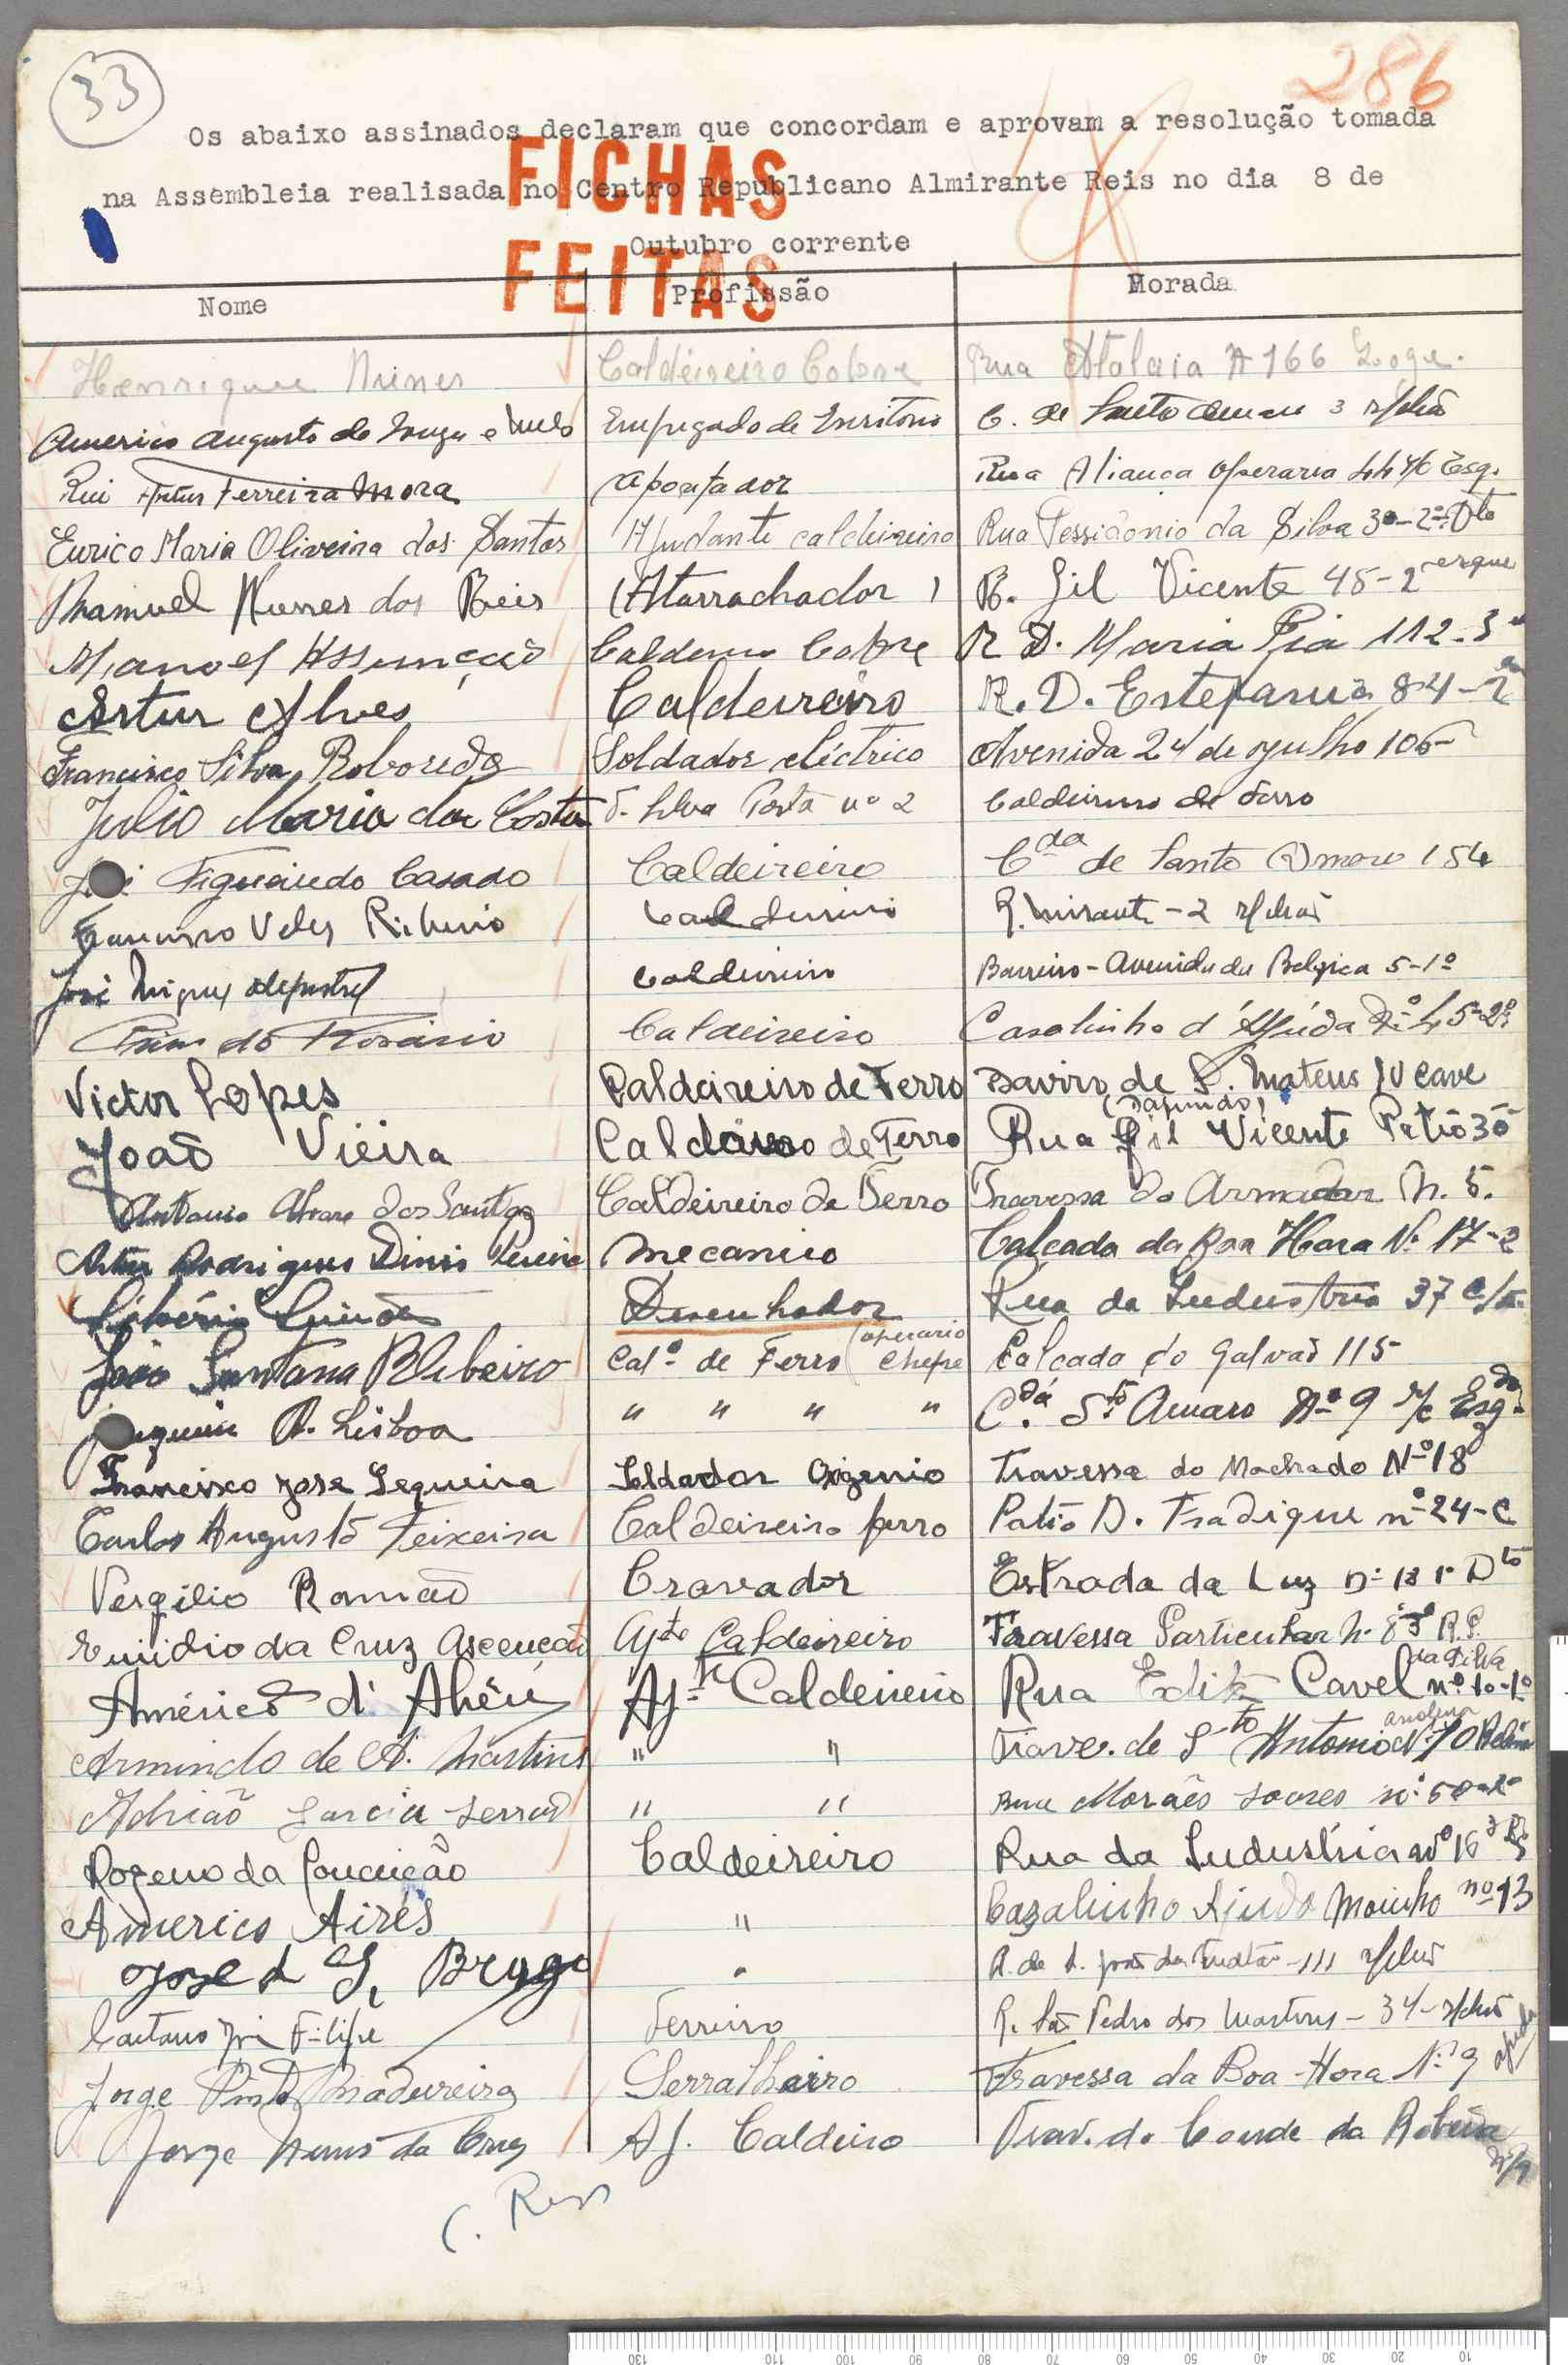 33
286
Os abaixo assinados declaram que concordam e aprovam a resolução tomada
na Assembleia realisada no Centro Republicano Almirante Reis no dia 8 de
Outubro corrente
FICHAS
FEITAS
Nome Profissão Morada
Henrique Nunes Caldeireiro Cobre Rua Atalaia Nº 166 Loge.
Americo Augusto de Souza e Melo Empregado de Escritorio C. de Santo Amaro 3 r/chão
Rui Artur Ferreira Mora apontador Rua Aliança Operaria 44 r/c Esq.
Eurico Maria Oliveira dos Santos Ajudante caldeireiro Rua Possidonio da Silva 30-2º Dto
Manuel Nunes dos Reis (Atarrachador) R. Gil Vicente 45-2º esque
Manoel Assunção Caldereiro Cobre R D. Maria Pia 112-3º
Artur Alves Caldeireiro R. D. Estefania 84-2
Francisco Silva Roboredo Soldador eléctrico Avenida 24 de Julho 106
Julio Maria da Costa Porta nº 2 Caldeireiro de Ferro
José Figueiredo Casado Caldeireiro Cda de Santo Amaro 154
Francisco Veles Ribeiro Caldeireiro R. Mirante - 2 r/chão
José Miguel Caldeireiro Barreiro - Avenida da Belgica 5-1º
do Rosário Caldeireiro Casalinho d'Ajuda Nº 45-2º
Victor Lopes Caldeireiro de Ferro Bairro de S. Mateus IV cave
(Dafundo)
João Vieira Caldeireiro de Ferro Rua Gil Vicente Patio 30
Antonio Alvaro dos Santos Caldeireiro de Ferro Travessa do Armador N. 5.
Artur Rodrigues Dinis Pereira Mecanico Calçada da Boa Hora Nº 17-2
Libério Simões Desenhador Rua da Industria 37 c/v
João Santana Ribeiro Calº de Ferro (operario Chefe Calçada do Galvão 115
Joaquim A. Lisboa " " " " Cda Sto Amaro Nº 9 r/c Esqdo
Francisco José Sequeira Soldador Oxigenio Travessa do Machado Nº 18
Carlos Augusto Teixeira Caldeireiro ferro Patio D. Fradique nº 24-C
Vergilio Romão Cravador Estrada da Luz nº 13 1º Dto
Emidio da Cruz Ascenção Ajte Caldeireiro Travessa Particular
Américo d'Abreu Ajte Caldeireiro Rua Edite Cavel nº 10-1º
Armindo de A. Martins " " Trave. de Sto Antonio Nº 70 Belem
Adrião Garcia Serrão " " Rua Morães Soares nº 50-2º
Rogerio da Conceição Caldeireiro Rua da Industria nº 16
Americo Aires " Cazalinho Ajuda Moinho nº 13
José d S. Braga " R. de S. João da 111 r/chão
Caetano José Filipe Ferreiro R. São Pedro dos Martires - 34 - r/chão
Jorge Pinto Madureira Serralheiro Travessa da Boa-Hora Nº 9 Ajuda
Jorge Nunes da Cruz Aj. Caldeiro Trav. do Conde da Ribeira
C. Reis